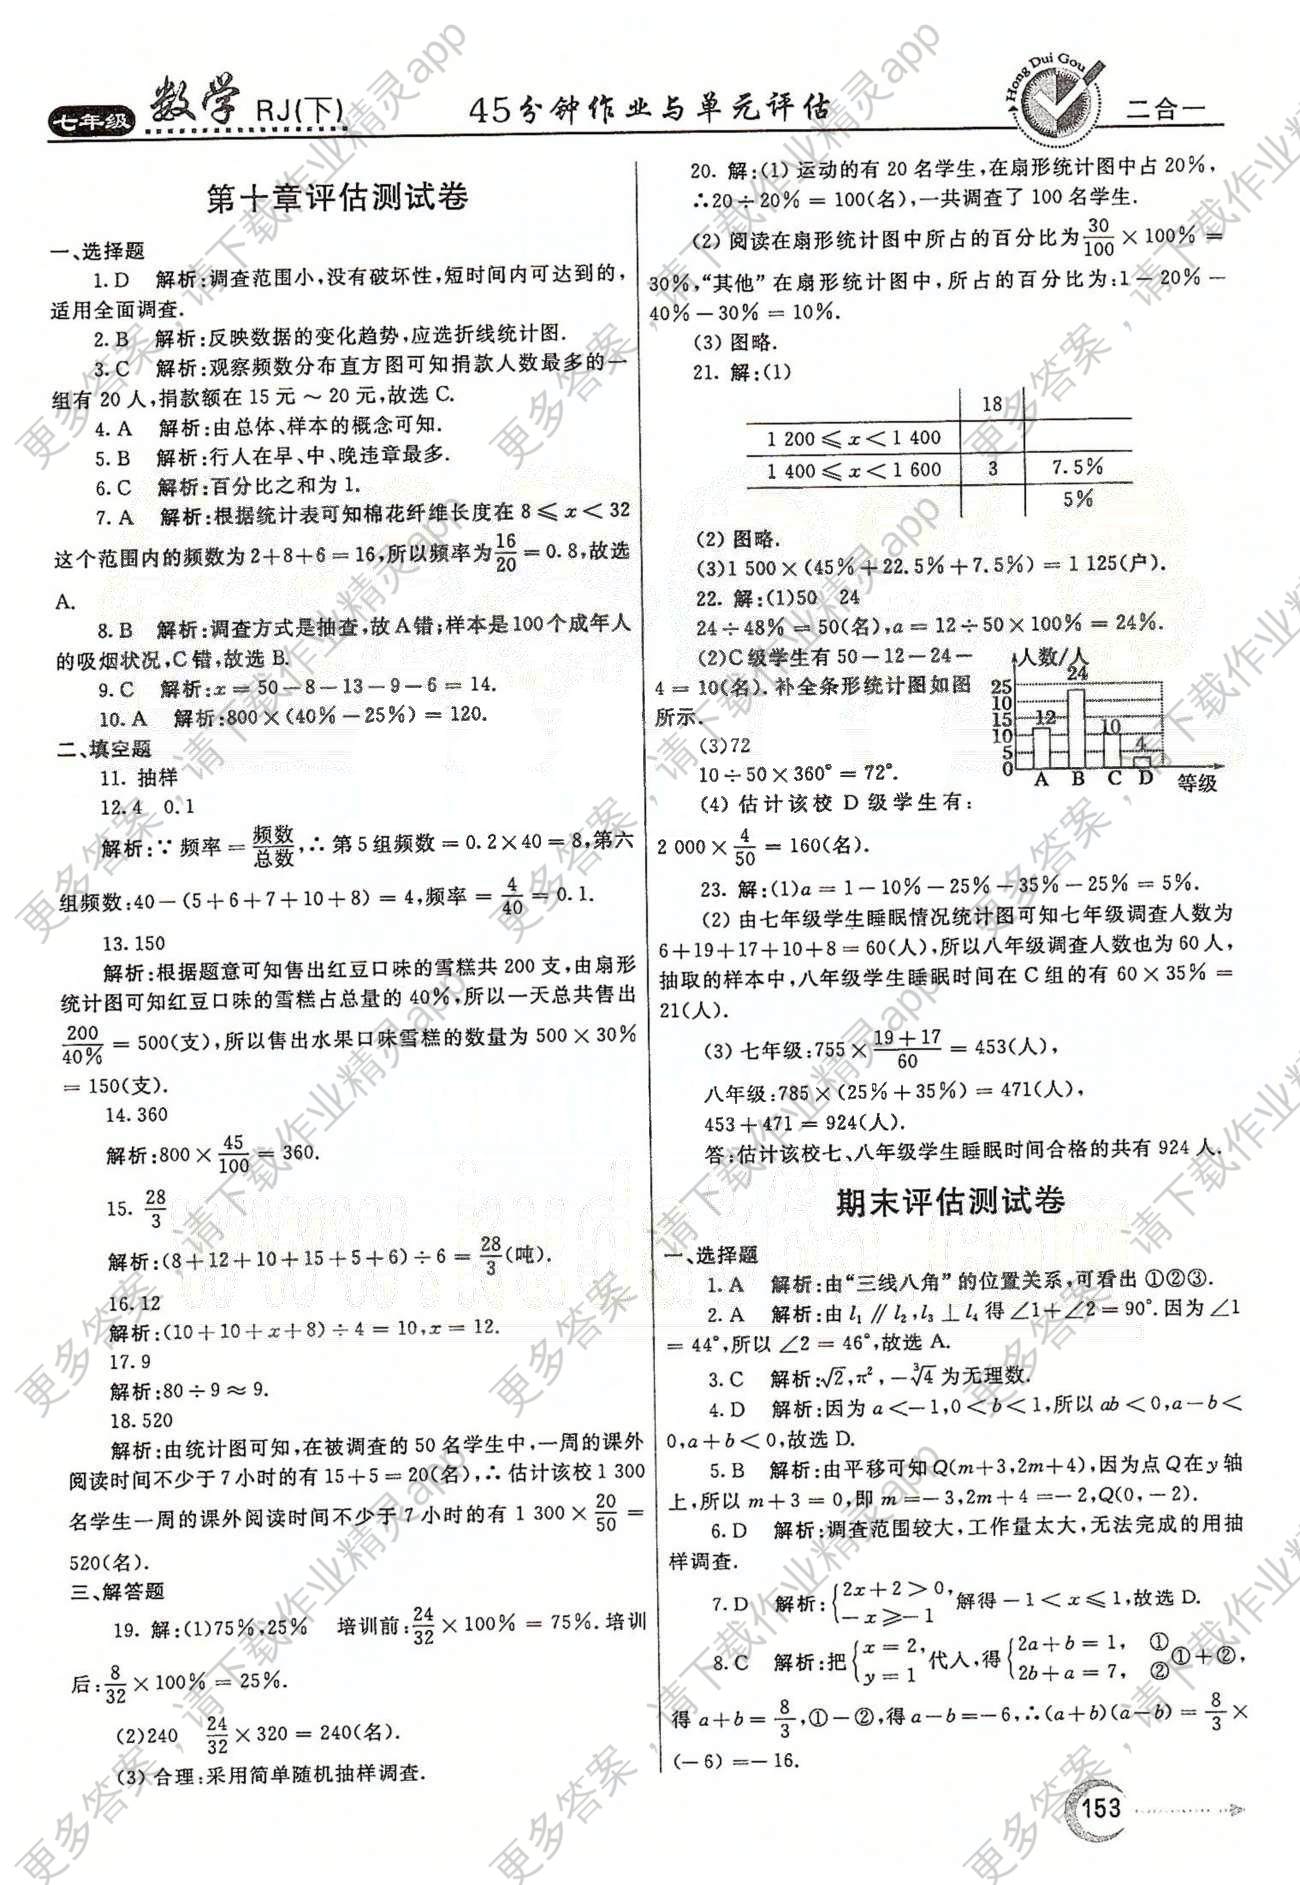 七年级 数学 RJ(下) 45分钟作业与单元评估 Hong Dui Gou 二合一
第十章评估测试卷
一、选择题
1. D 解析:调查范围小,没有破坏性,短时间内可达到的,
适用全面调查.
2. B 解析:反映数据的变化趋势,应选折线统计图.
3. C 解析:观察频数分布直方图可知捐款人数最多的一
组有 20 人,捐款额在 15 元 ～ 20 元,故选 C.
4. A 解析:由总体、样本的概念可知.
5. B 解析:行人在早、中、晚违章最多.
6. C 解析:百分比之和为 1.
7. A 解析:根据统计表可知棉花纤维长度在 8 ⩽ x < 32
这个范围内的频数为 2+8+6=16,所以频率为 16/20 = 0.8,故选
A.
8. B 解析:调查方式是抽查,故 A 错;样本是 100 个成年人
的吸烟状况,C 错,故选 B.
9. C 解析:x = 50-8-13-9-6 = 14.
10. A 解析:800×(40%-25%) = 120.
二、填空题
11. 抽样
12. 4 0.1
解析:∵ 频率 = 频数/总数,∴ 第 5 组频数 = 0.2×40 = 8,第六
组频数:40-(5+6+7+10+8) = 4,频率 = 4/40 = 0.1.
13. 150
解析:根据题意可知售出红豆口味的雪糕共 200 支,由扇形
统计图可知红豆口味的雪糕占总量的 40%,所以一天总共售出
200/40% = 500(支),所以售出水果口味雪糕的数量为 500×30%
= 150(支).
14. 360
解析:800×45/100 = 360.
15. 28/3
解析:(8+12+10+15+5+6)÷6 = 28/3(吨).
16. 12
解析:(10+10+x+8)÷4 = 10,x = 12.
17. 9
解析:80÷9 ≈ 9.
18. 520
解析:由统计图可知,在被调查的 50 名学生中,一周的课外
阅读时间不少于 7 小时的有 15+5 = 20(名),∴ 估计该校 1 300
名学生一周的课外阅读时间不少于 7 小时的有 1 300×20/50 =
520(名).
三、解答题
19. 解:(1)75%,25% 培训前:24/32×100% = 75%.培训
后:8/32×100% = 25%.
(2)240 24/32×320 = 240(名).
(3) 合理:采用简单随机抽样调查.
20. 解:(1) 运动的有 20 名学生,在扇形统计图中占 20%,
∴20÷20% = 100(名),一共调查了 100 名学生.
(2) 阅读在扇形统计图中所占的百分比为 30/100×100% =
30%,“其他”在扇形统计图中,所占的百分比为:1-20%-
40%-30% = 10%.
(3) 图略.
21. 解:(1)
18
1 200 ⩽ x < 1 400
1 400 ⩽ x < 1 600 3 7.5%
5%
(2) 图略.
(3)1 500×(45%+22.5%+7.5%) = 1 125(户).
22. 解:(1)50 24
24÷48% = 50(名),a = 12÷50×100% = 24%.
(2)C 级学生有 50-12-24-
4 = 10(名).补全条形统计图如图
所示.
(3)72
10÷50×360° = 72°.
(4) 估计该校 D 级学生有:
人数/人
24
25
10
15 12
10 10
5 4
0
A B C D 等级
2 000×4/50 = 160(名).
23. 解:(1)a = 1-10%-25%-35%-25% = 5%.
(2) 由七年级学生睡眠情况统计图可知七年级调查人数为
6+19+17+10+8 = 60(人),所以八年级调查人数也为 60 人,
抽取的样本中,八年级学生睡眠时间在 C 组的有 60×35% =
21(人).
(3) 七年级:755×(19+17)/60 = 453(人),
八年级:785×(25%+35%) = 471(人),
453+471 = 924(人).
答:估计该校七、八年级学生睡眠时间合格的共有 924 人.
期末评估测试卷
一、选择题
1. A 解析:由“三线八角”的位置关系,可看出 ①②③.
2. A 解析:由 l₁ ∥ l₂,l₃ ⊥ l₄ 得 ∠1+∠2 = 90°.因为 ∠1
= 44°,所以 ∠2 = 46°,故选 A.
3. C 解析:√2,π²,-∛4 为无理数.
4. D 解析:因为 a <-1,0 < b < 1,所以 ab < 0,a-b <
0,a+b < 0,故选 D.
5. B 解析:由平移可知 Q(m+3,2m+4),因为点 Q 在 y 轴
上,所以 m+3 = 0,即 m =-3,2m+4 =-2,Q(0,-2).
6. D 解析:调查范围较大,工作量太大,无法完成的用抽
样调查.
7. D 解析:{2x+2 > 0, -x ⩾-1 解得 -1 < x ⩽ 1,故选 D.
8. C 解析:把{x = 2, y = 1 代入,得{2a+b = 1, ① 2b+a = 7, ② ①+②,
得 a+b = 8/3,①-②,得 a-b =-6,∴(a+b)(a-b) = 8/3×
(-6) =-16.
153
更多答案,请下载作业精灵app